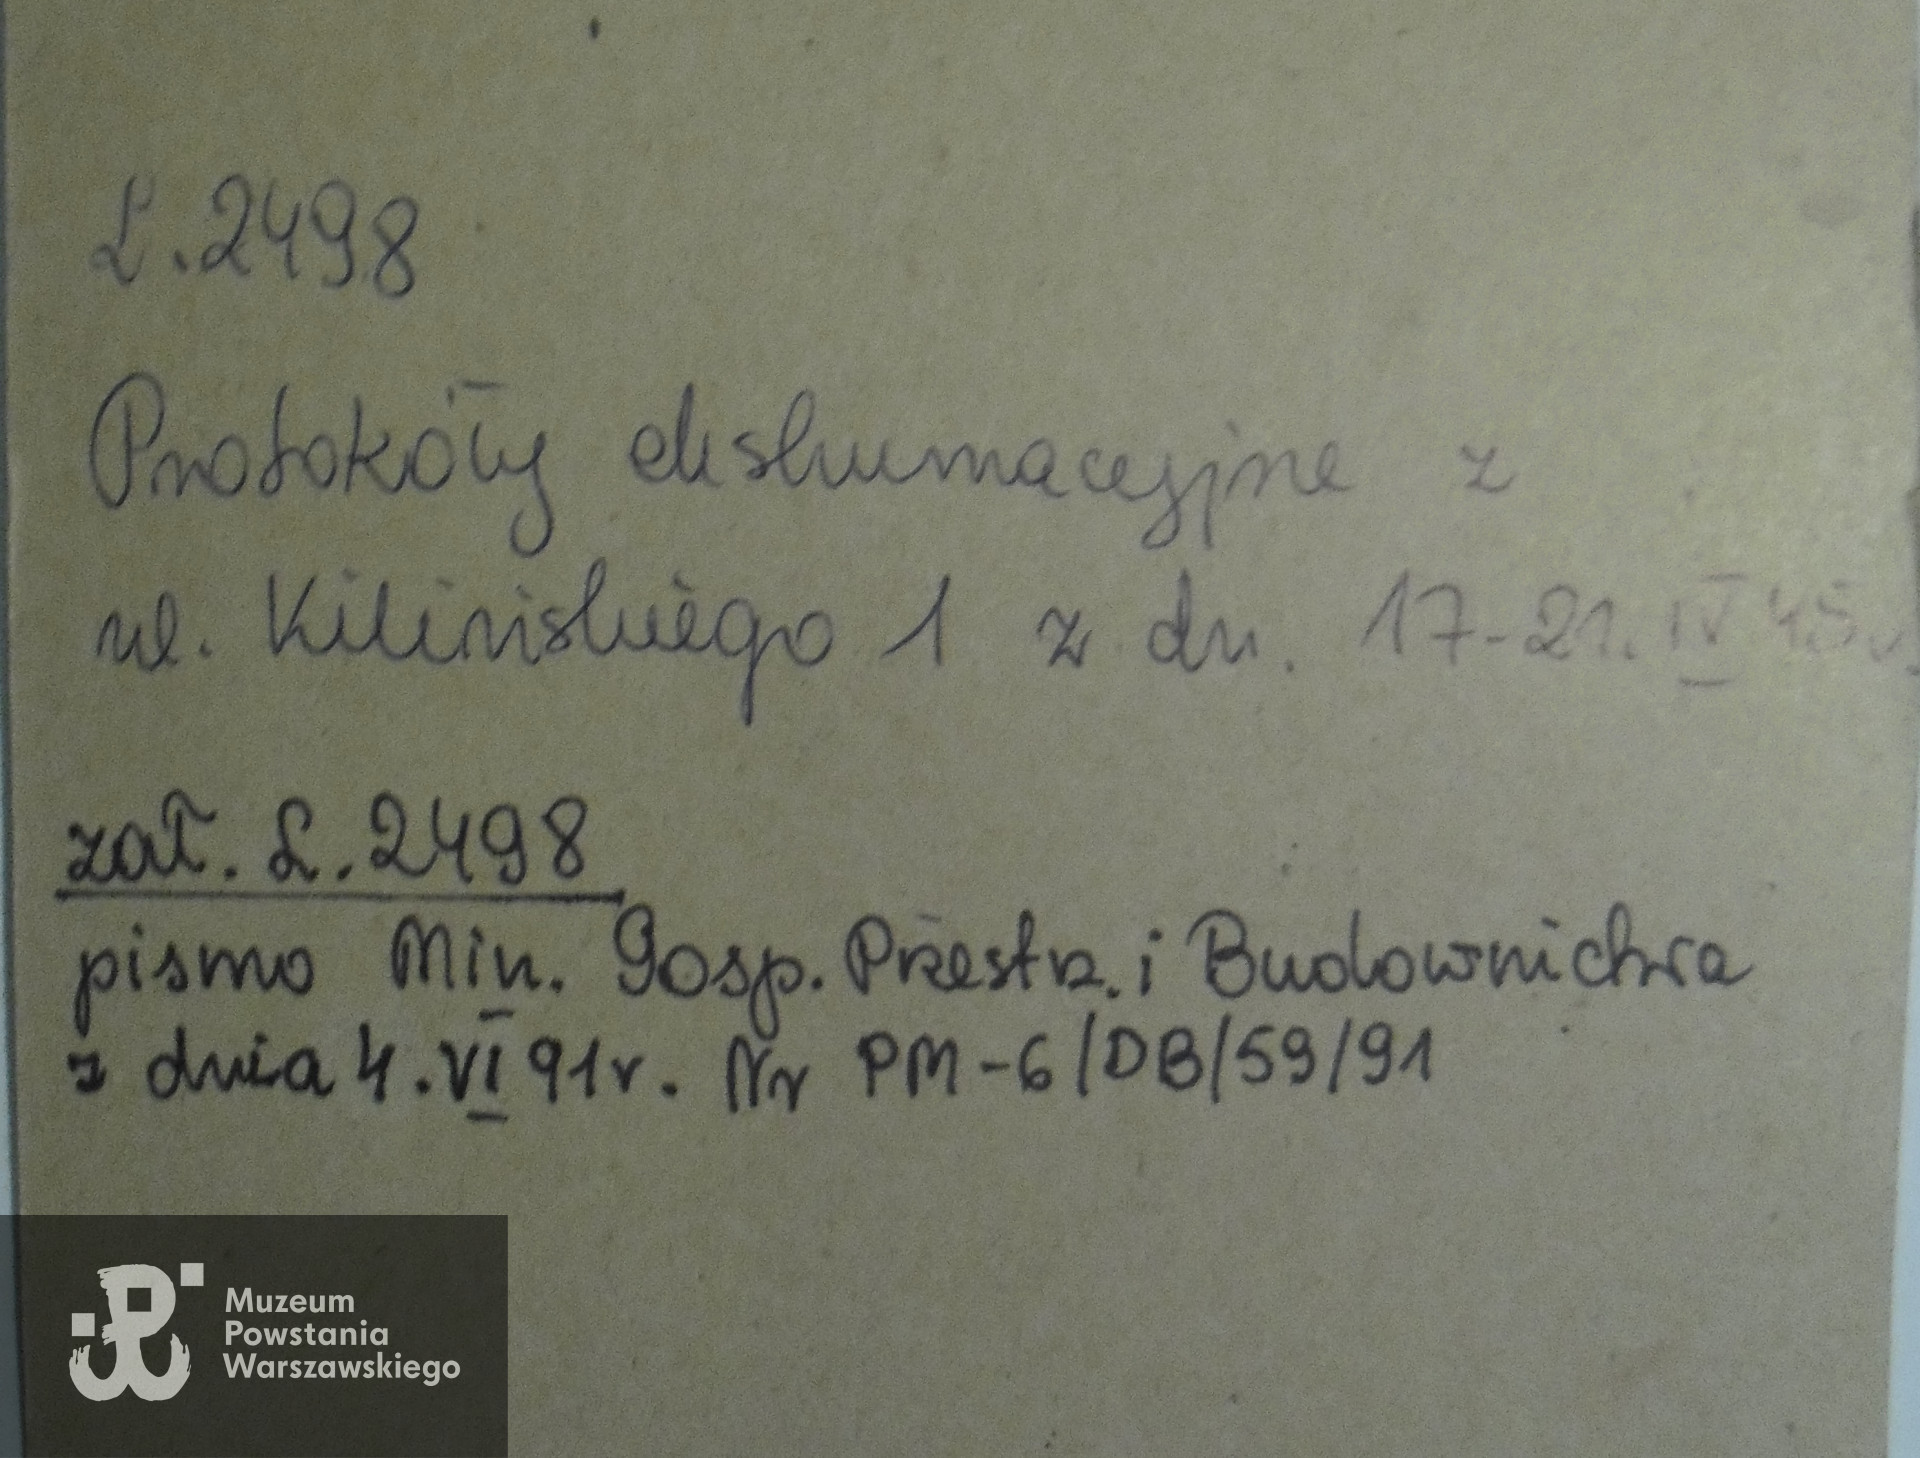 L.2498
Protokóły ekshumacyjne z
ul. Kilińskiego 1 z dn. 17-21.IV 45r.
zał. L.2498
pismo Min. Gosp. Przestrz. i Budownictwa
z dnia 4.VI 91r. Nr PM-6/DB/59/91
Muzeum
Powstania
Warszawskiego